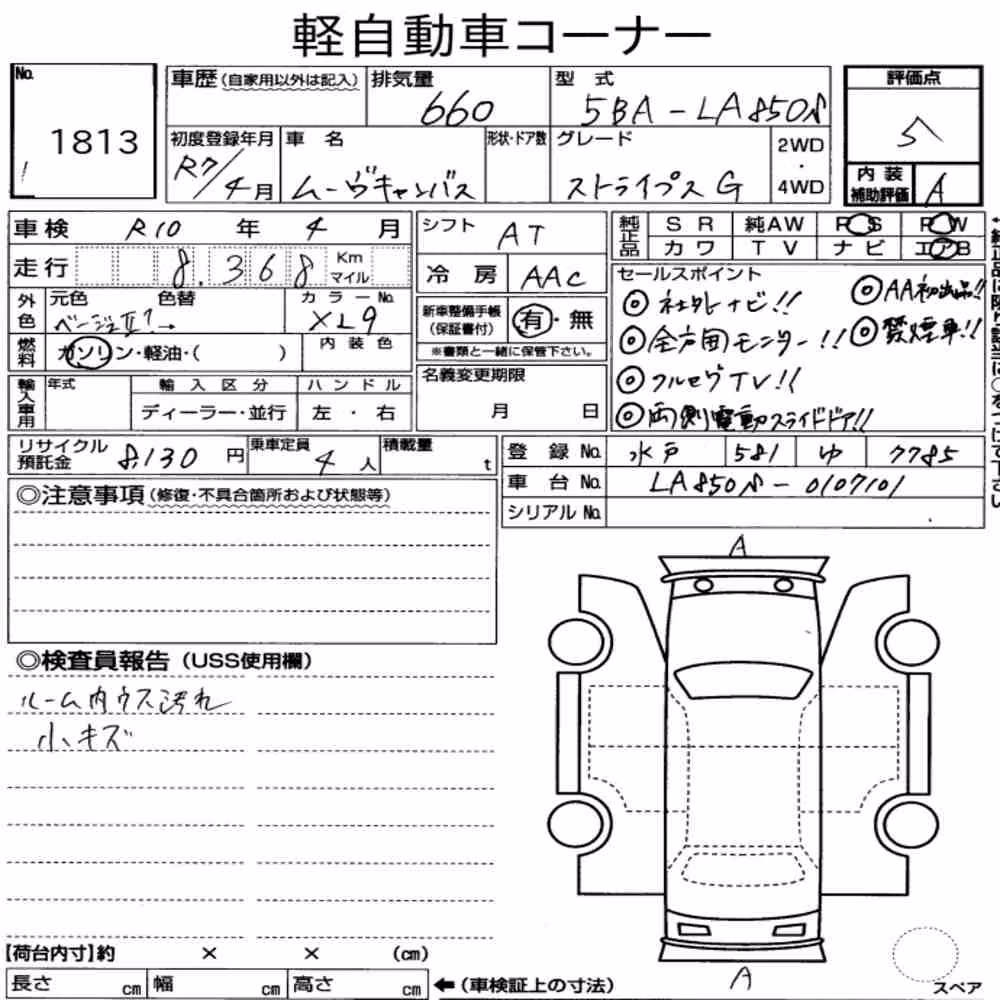 軽自動車コーナー
No. 1813
車歴(自家用以外は記入) 排気量 660 型式 5BA-LA850S
初度登録年月 R7/4月 車名 ムーヴキャンバス 形状・ドア数 グレード ストライプスG 2WD・4WD
評価点 5
内装補助評価 A
車検 R10年 4月
走行 8,368 Km マイル
シフト AT
冷房 AAC
純正品 SR 純AW PS PW
カワ TV ナビ エアB
外色 元色 ベージュII 色替 カラーNo. XL9
内装色
燃料 ガソリン・軽油・( )
新車整備手帳(保証書付) 有・無
※書類と一緒に保管下さい。
セールスポイント
◎社外ナビ!! ◎AA初出品!!
◎全方囲モニター!! ◎禁煙車!!
◎フルセグTV!!
◎両側電動スライドドア!!
輸入車用 年式 輸入区分 ディーラー・並行 ハンドル 左・右
名義変更期限 月 日
リサイクル預託金 8,130円 乗車定員 4人 積載量 t
登録No. 水戸 581 ゆ 7785
車台No. LA850S-0107101
シリアルNo.
◎注意事項(修復・不具合箇所および状態等)
◎検査員報告(USS使用欄)
ルーム内ウス汚れ
小キズ
A
A
【荷台内寸】約 × × (cm)
長さ cm 幅 cm 高さ cm ←(車検証上の寸法)
スペア